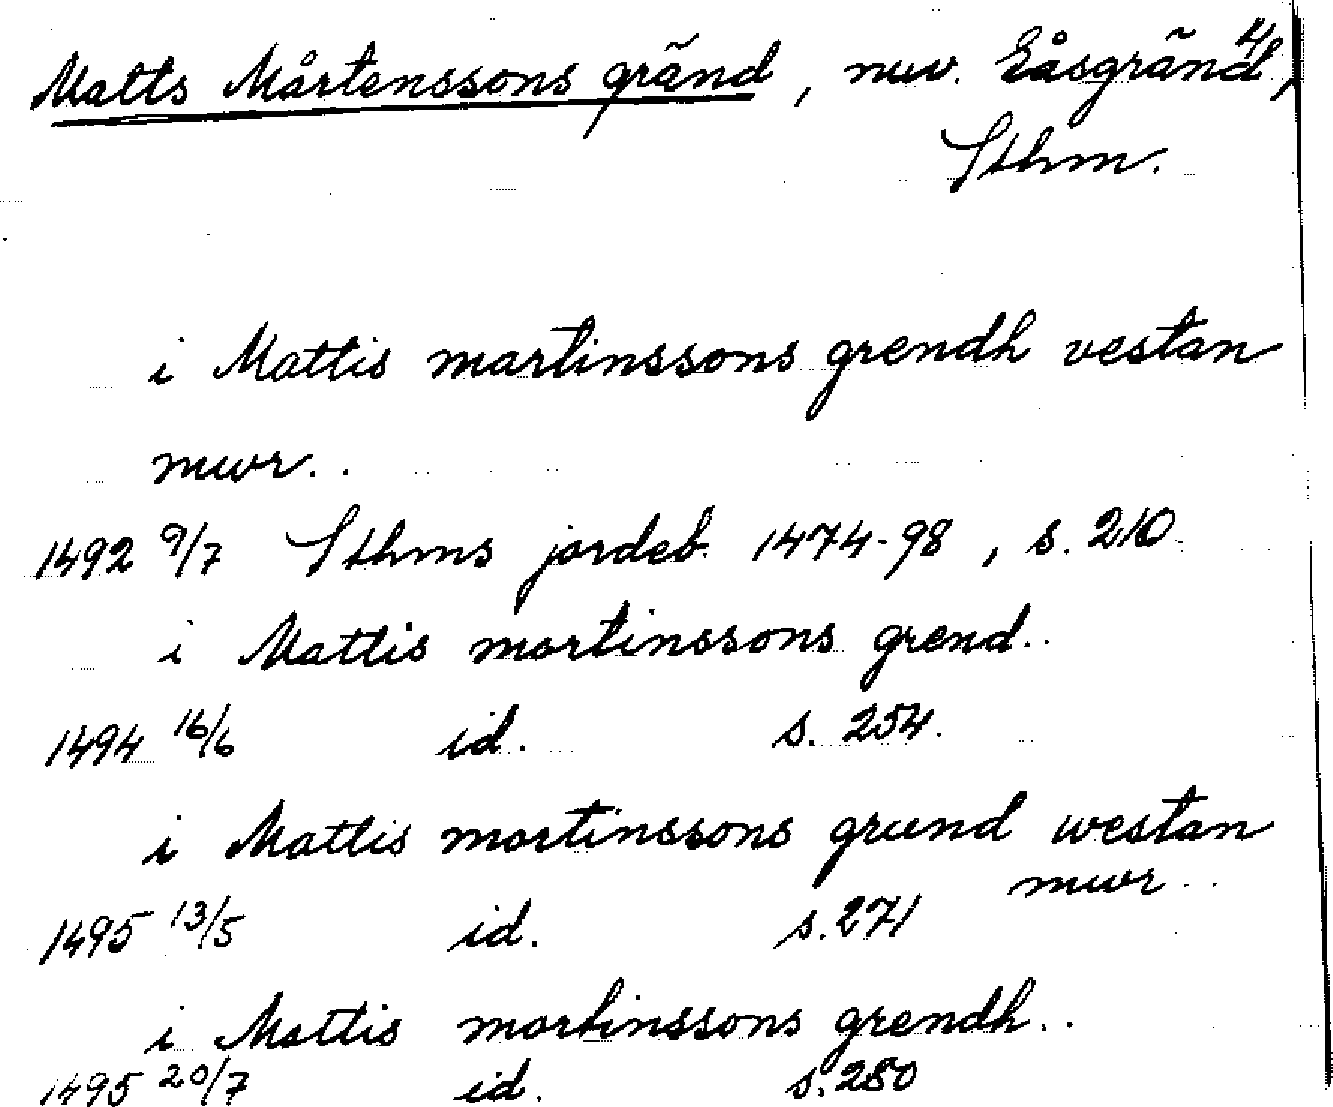 Matts Mårtenssons gränd, nuv. Gåsgränd, 4
Sthm.
i Mattis martinssons grendh vestan
mwr..
1492 9/7 Sthms jordeb. 1474-98, s. 210
i Mattis martinssons grend..
1494 16/6 id. s. 254.
i Mattis martinssons grend westan
mwr..
1495 13/5 id. s. 271
i Mattis martinssons grendh..
1495 20/7 id. s. 280